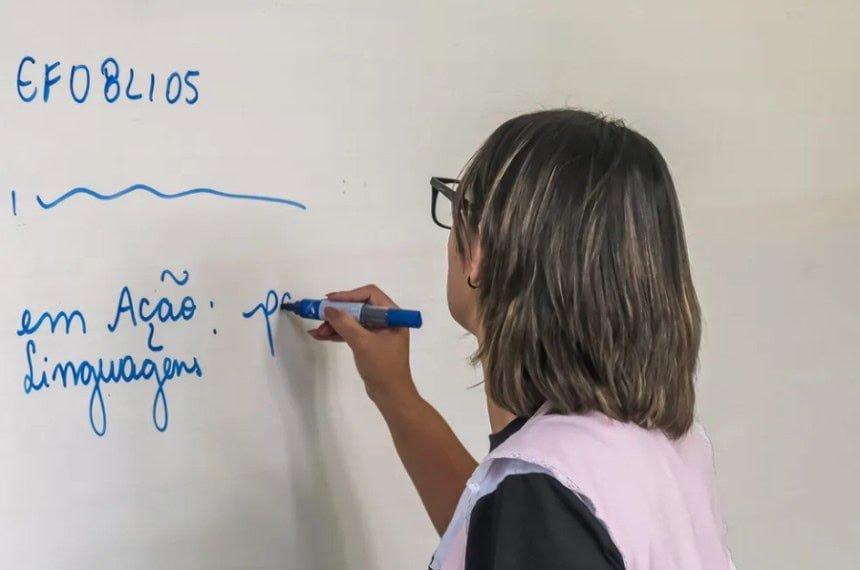 EFOBLIOS
em Ação: pa
Linguagens